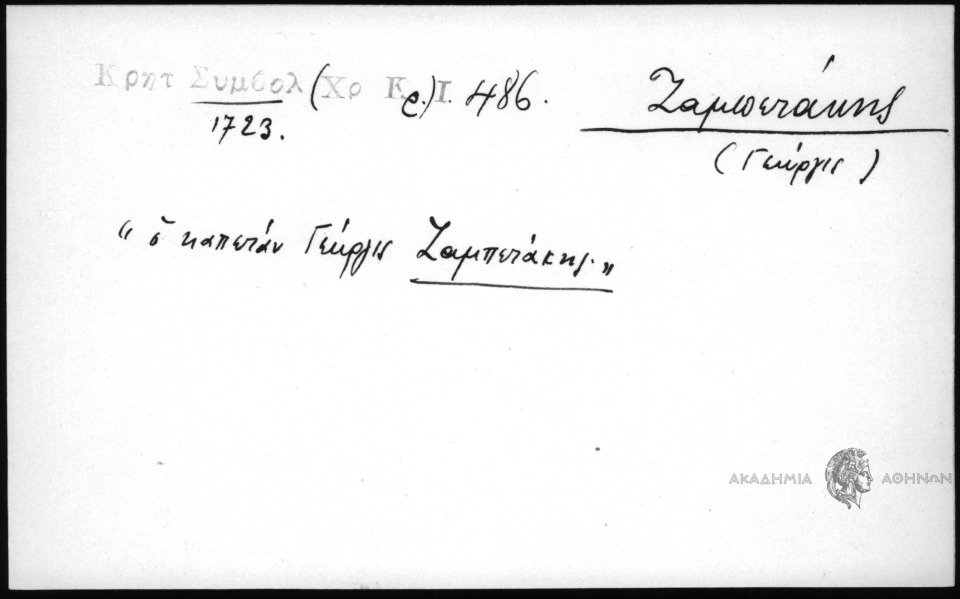 Κρητ Συμβολ (Χρ Κ.ρ.) Ι. 486.
1723.
Ζαμπετάκης
(Γεώργις)
"ὁ καπετάν Γεώργις Ζαμπετάκης."
ΑΚΑΔΗΜΙΑ ΑΘΗΝΩΝ